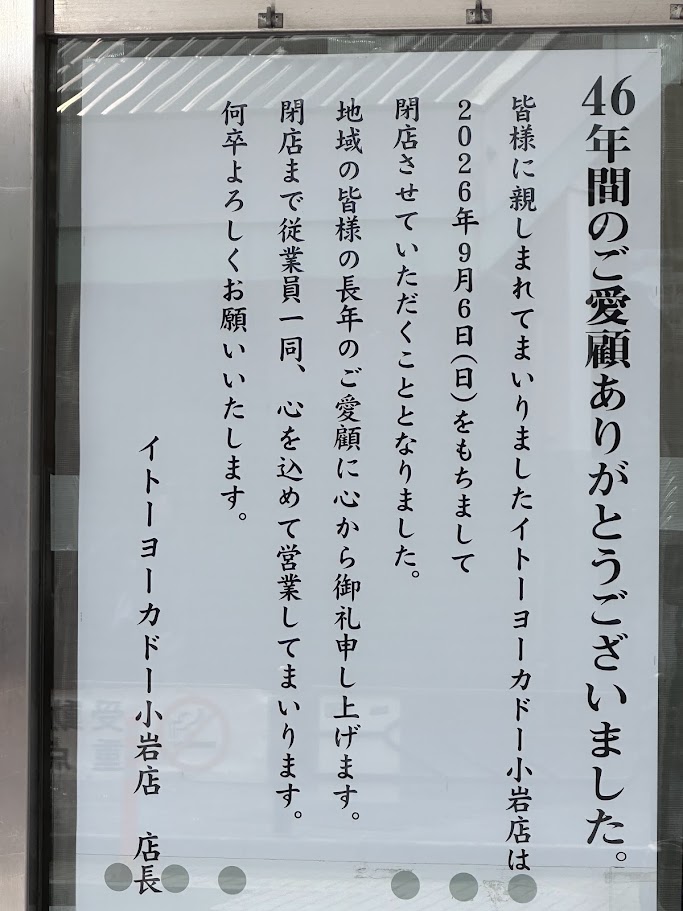 46年間のご愛顧ありがとうございました。
皆様に親しまれてまいりましたイトーヨーカドー小岩店は
2026年9月6日(日)をもちまして
閉店させていただくこととなりました。
地域の皆様の長年のご愛顧に心から御礼申し上げます。
閉店まで従業員一同、心を込めて営業してまいります。
何卒よろしくお願いいたします。
イトーヨーカドー小岩店 店長